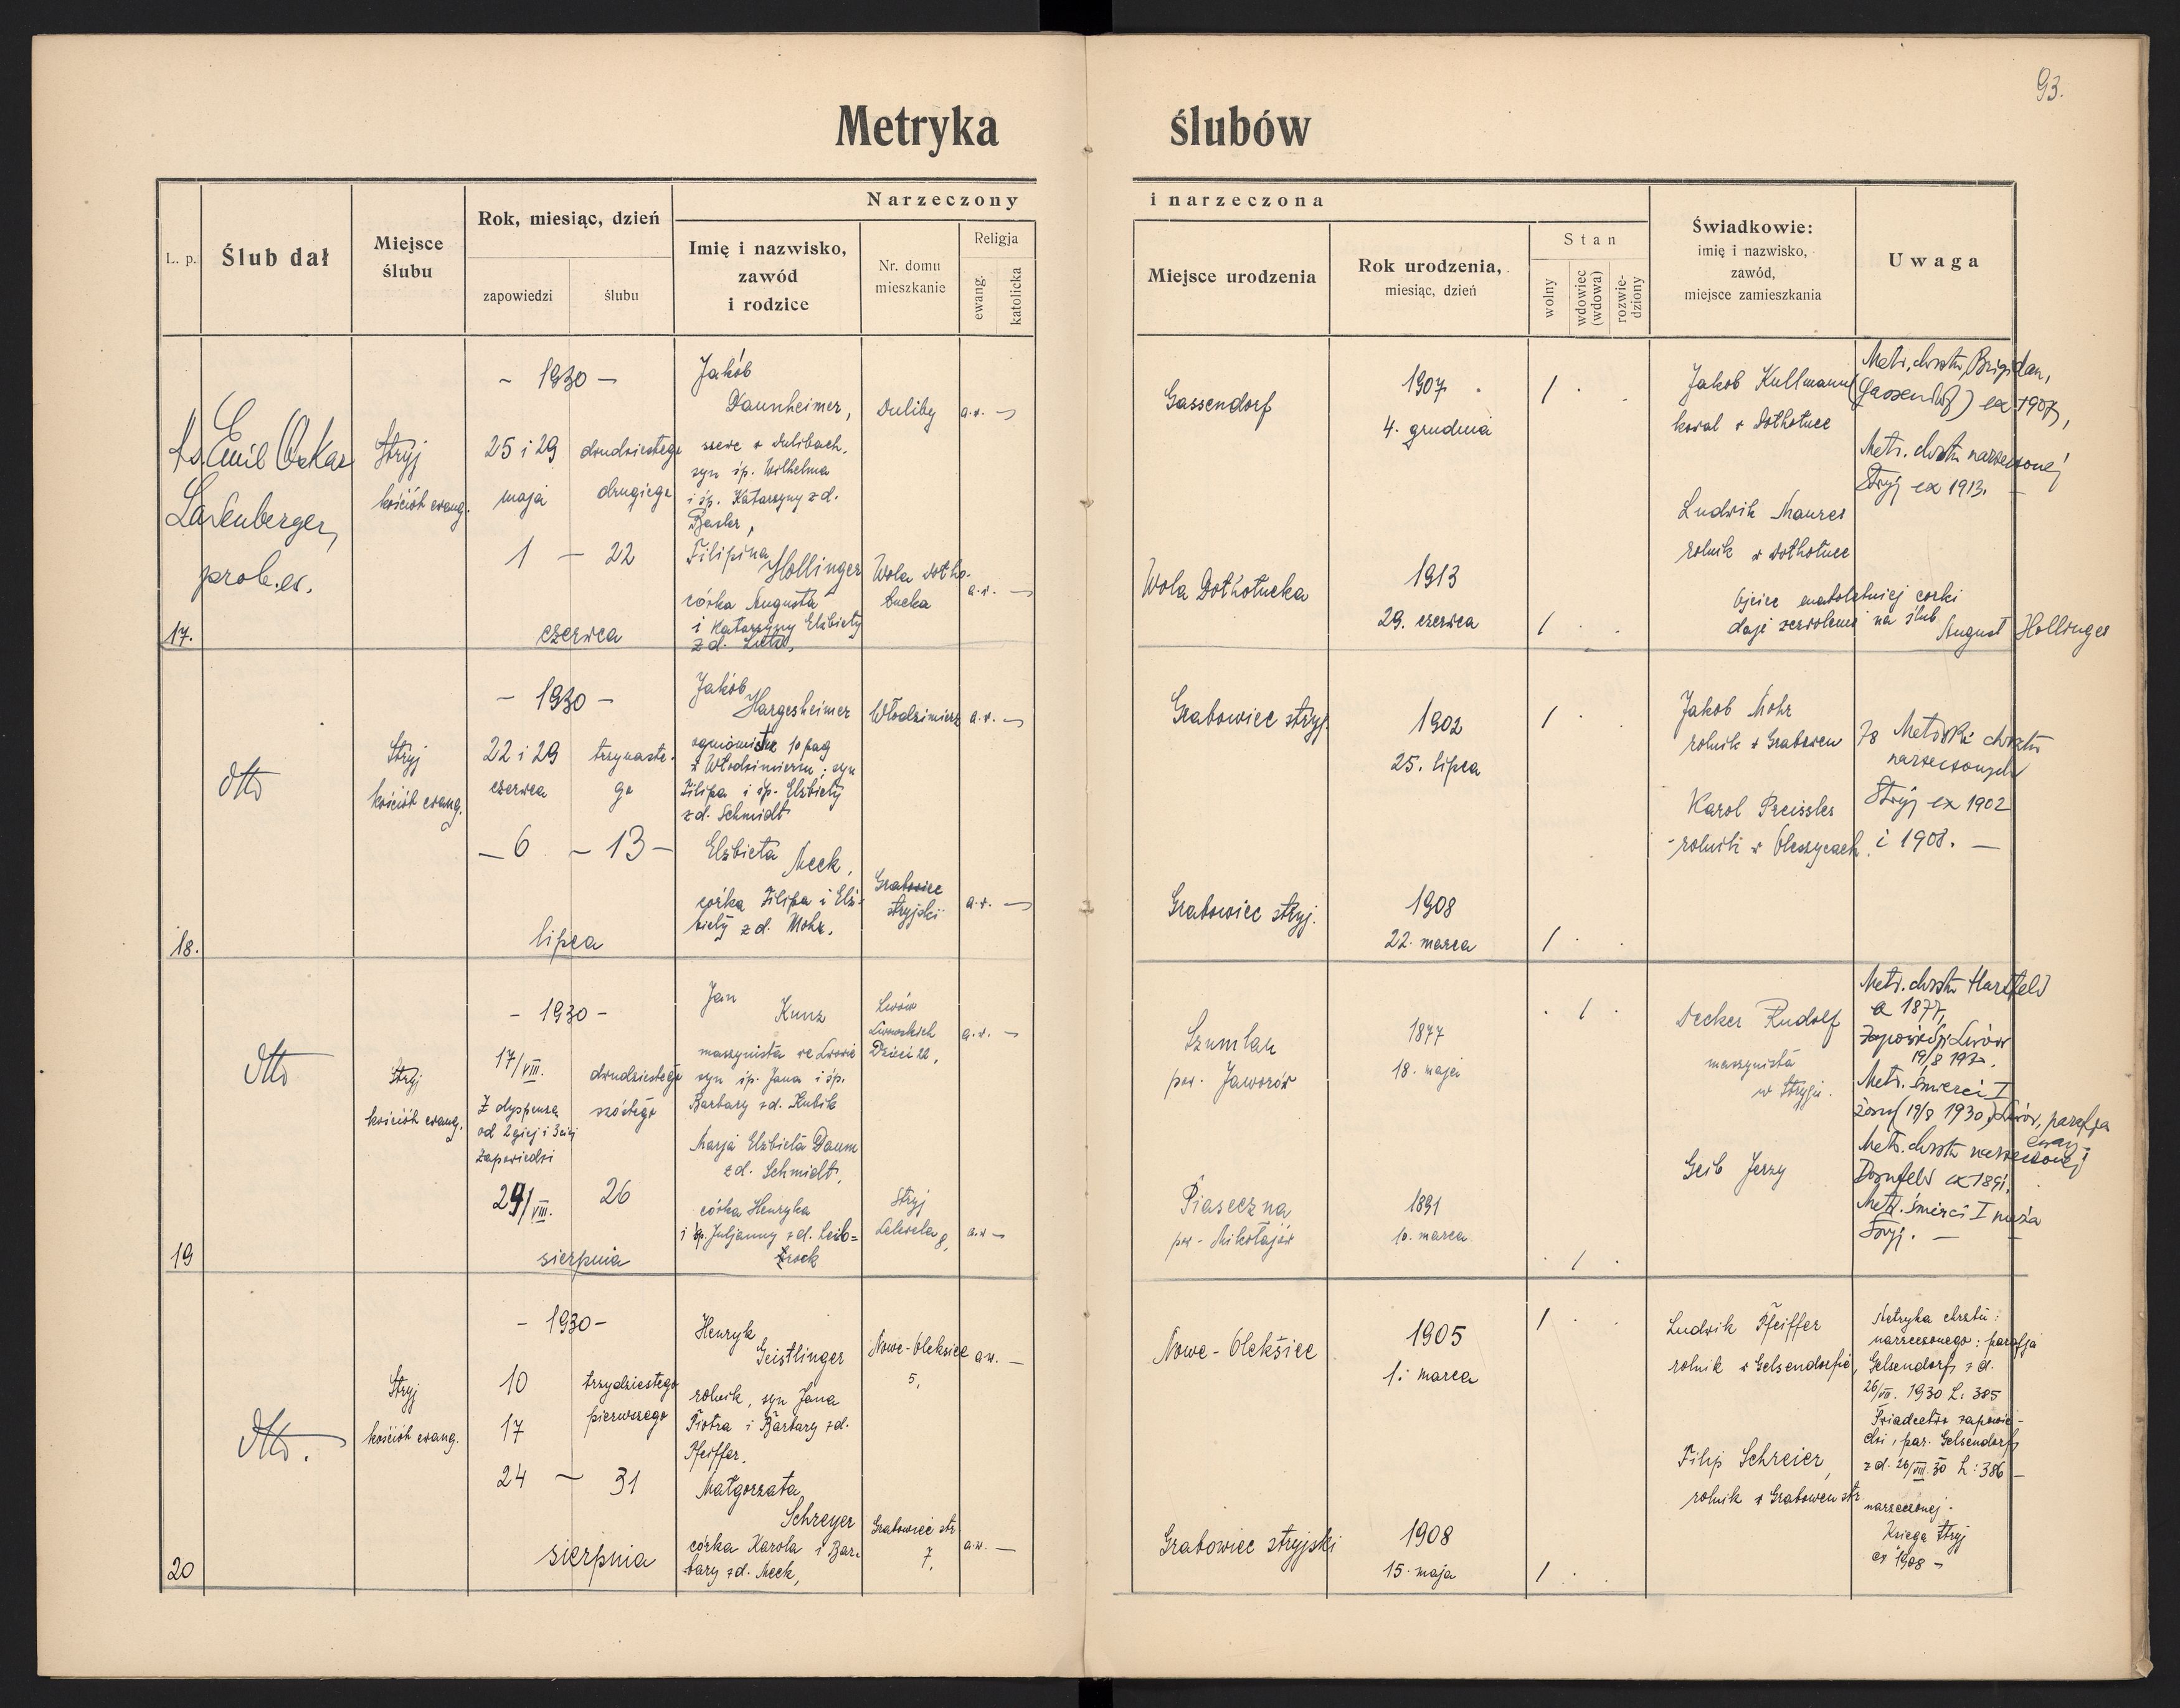 93.
Metryka ślubów
L. p.
Ślub dał
Miejsce
ślubu
Rok, miesiąc, dzień
zapowiedzi
ślubu
Narzeczony
Imię i nazwisko,
zawód
i rodzice
Nr. domu
mieszkanie
Religja
ewang.
katolicka
i narzeczona
Miejsce urodzenia
Rok urodzenia,
miesiąc, dzień
Stan
wolny
wdowiec
(wdowa)
rozwie-
dziony
Świadkowie:
imię i nazwisko,
zawód,
miejsce zamieszkania
Uwaga
17.
Ks. Emil Oskar
Ladenberger,
prob. ew.
Stryj
kościół ewang.
- 1930 -
25 i 29
maja
dwudziestego
drugiego
1 - 22
czerwca
Jakób
Daunheimer,
szewc w Dulibach,
syn śp. Wilhelma
i śp. Katarzyny z d.
Basler,
Duliby
a.w. -
Filipina
Hollinger
córka Augusta
i Katarzyny Elżbiety
z d. Lutz,
Wola Dołho-
łucka
a.w. -
Gassendorf
1907
4. grudnia
/ . .
Wola Dołhołucka
1913
29. czerwca
/ . .
Jakob Kullmann
kowal w Dołhołuce
Ludwik Maurer
rolnik w Dołhołuce
Ojciec małoletniej córki
daje zezwolenie na ślub
August Hollinger
Metr. chrztu Brigidau,
(Gassendorf) ex 1907,
Metr. chrztu narzeczonej
Stryj ex 1913. -
18.
dtto
Stryj
kościół ewang.
- 1930 -
22 i 29
czerwca
trzynaste-
go
- 6 - 13 -
lipca
Jakób
Hargesheimer
ogniomistrz 10 pag
w Włodzimierzu; syn
Filipa i śp. Elżbiety
z d. Schmidt
Włodzimierz
a.w. -
Elżbieta
Meck,
córka Filipa i Elż-
biety z d. Mohr.
Grabowiec
stryjski
a.w. -
Grabowiec stryj.
1902
25. lipca
/ . .
Grabowiec stryj.
1908
22. marca
/ . .
Jakob Mohr
rolnik w Grabowcu
Karol Preissler
rolnik w Oleszycach.
Metryki chrztu
narzeczonych
Stryj ex 1902
i 1908. -
19
dtto
Stryj
kościół ewang.
- 1930 -
17/VIII.
Z dyspenzą
od 2giej i 3ciej
zapowiedzi
24/VIII.
dwudziestego
szóstego
26
sierpnia
Jan
Kunz
maszynista we Lwowie
syn śp. Jana i śp.
Barbary z d. Kubik
Lwów
Lwowskich
Dzieci 22,
a.w. -
Marja Elżbieta Daum
z d. Schmidt,
córka Henryka
i śp. Juljanny z d. Leib=
brock
Stryj
Lelewela 8,
a.w -
Szumlau
pow. Jaworów
1877
18. maja
. / .
Piaseczna
pow. Mikołajów
1891
10. marca
. / .
Decker Rudolf
maszynista
w Stryju.
Geib Jerzy
Metr. chrztu Hartfeld
ex 1877,
Zapowiedzi Lwów
Metr. śmierci I
żony (19/8 1930) Lwów, parafja
ewang.
Metr. chrztu narzeczonej
Dornfeld ex 1891.
Metr. śmierci I męża
Stryj. -
20
dtto.
Stryj
kościół ewang.
- 1930 -
10
17
24 - 31
trzydziestego
pierwszego
sierpnia
Henryk
Geistlinger
rolnik, syn Jana
Piotra i Barbary z d.
Pfeiffer.
Nowe-Oleksice
5,
aw. -
Małgorzata
Schreyer
córka Karola i Bar-
bary z d. Meck,
Grabowiec str
7.
a.w. -
Nowe-Olekśice
1905
1. marca
/ . .
Grabowiec stryjski
1908
15. maja
/ . .
Ludwik Pfeiffer
rolnik w Gelsendorfie,
Filip Schreier,
rolnik w Grabowcu str
Metryka chrztu:
narzeczonego: parafja
Gelsendorf z d.
26/VII. 1930 L: 385
Świadectwo zapowie-
dzi, par. Gelsendorf
z d. 26/VIII.30 L: 386 -
narzeczonej.
Księga Stryj
ex 1908 -